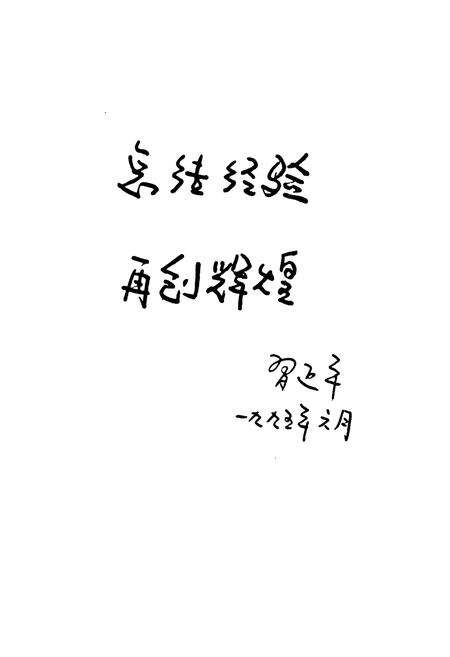 总结经验
再创辉煌
习近平
一九九五年六月